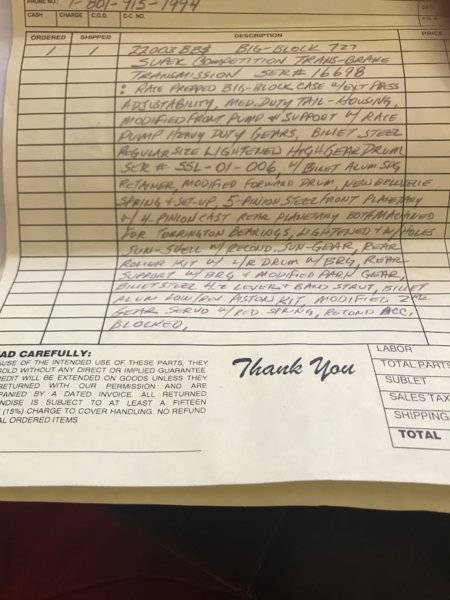 PHONE NO. 1-801-915-1994
CASH CHARGE C.O.D. O-C. NO.
ORDERED SHIPPED DESCRIPTION PRICE
1 1 22003BBS BIG-BLOCK 727
SUPER COMPETITION TRANS-BRAKE
TRANSMISSION SER# 16698
: RACE PREPPED BIG-BLOCK CASE W/EXT PRESS
ADJUSTABILITY, MED. DUTY TAIL-HOUSING,
MODIFIED FRONT PUMP & SUPPORT W/ RACE
PUMP HEAVY DUTY GEARS, BILLET STEEL
REGULAR SIZE LIGHTENED HIGH GEAR DRUM
SER # SSL-01-006, W/ BILLET ALUM SPG
RETAINER, MODIFIED FORWARD DRUM, NEW BELLEVILLE
SPRING & SET-UP, 5-PINION STEEL FRONT PLANETARY
& 4-PINION CAST REAR PLANETARY BOTH MACHINED
FOR TORRINGTON BEARINGS, LIGHTENED W/ HOLES
SUN-SHELL W/ RECOND. SUN-GEAR, REAR
ROLLER KIT W/ L/R DRUM W/ BRG, REAR
SUPPORT W/ BRG & MODIFIED PARK GEAR,
BILLET STEEL 4.2 LEVER & BAND STRUT, BILLET
ALUM LOW/REV PISTON KIT, MODIFIED 2ND
GEAR SERVO W/ RED SPRING, RECOND ACC.
BLOCKED,
AD CAREFULLY:
AUSE OF THE INTENDED USE OF THESE PARTS, THEY
SOLD WITHOUT ANY DIRECT OR IMPLIED GUARANTEE.
REDIT WILL BE EXTENDED ON GOODS UNLESS THEY
RETURNED WITH OUR PERMISSION AND ARE
PANIED BY A DATED INVOICE. ALL RETURNED
NDISE IS SUBJECT TO AT LEAST A FIFTEEN
(15%) CHARGE TO COVER HANDLING. NO REFUND
AL ORDERED ITEMS.
Thank You
LABOR
TOTAL PARTS
SUBLET
SALES TAX
SHIPPING
TOTAL